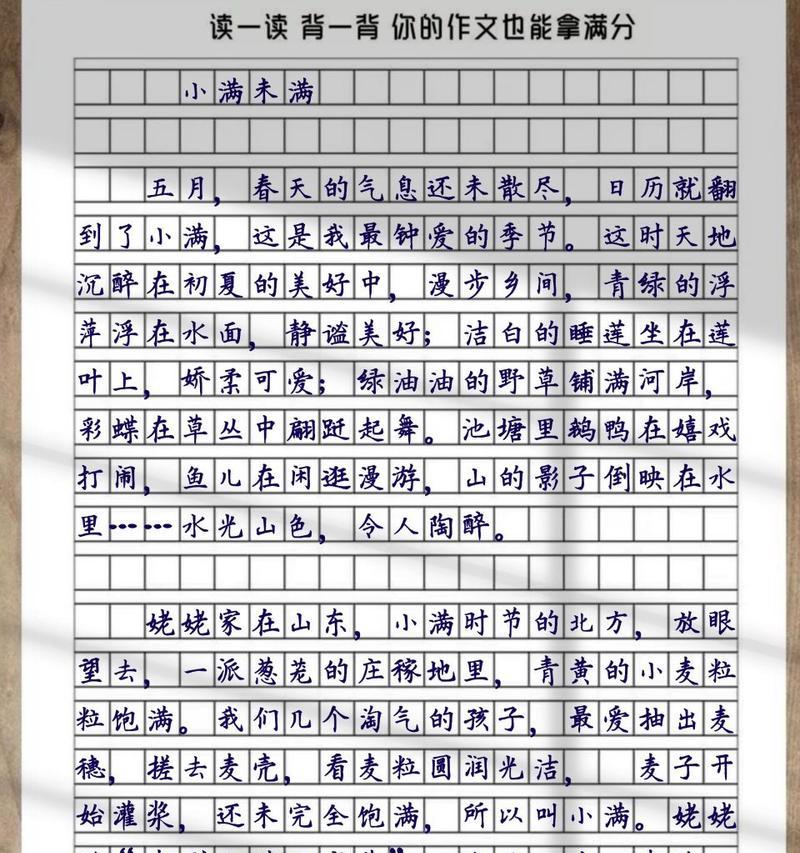 读一读 背一背 你的作文也能拿满分
小满未满
五月，春天的气息还未散尽，日历就翻
到了小满，这是我最钟爱的季节。这时天地
沉醉在初夏的美好中，漫步乡间，青绿的浮
萍浮在水面，静谧美好；洁白的睡莲坐在莲
叶上，娇柔可爱；绿油油的野草铺满河岸，
彩蝶在草丛中翩跹起舞。池塘里鹅鸭在嬉戏
打闹，鱼儿在闲逛漫游，山的影子倒映在水
里……水光山色，令人陶醉。
姥姥家在山东，小满时节的北方，放眼
望去，一派葱茏的庄稼地里，青黄的小麦粒
粒饱满。我们几个淘气的孩子，最爱抽出麦
穗，搓去麦壳，看麦粒圆润光洁， 麦子开
始灌浆，还未完全饱满，所以叫小满。姥姥